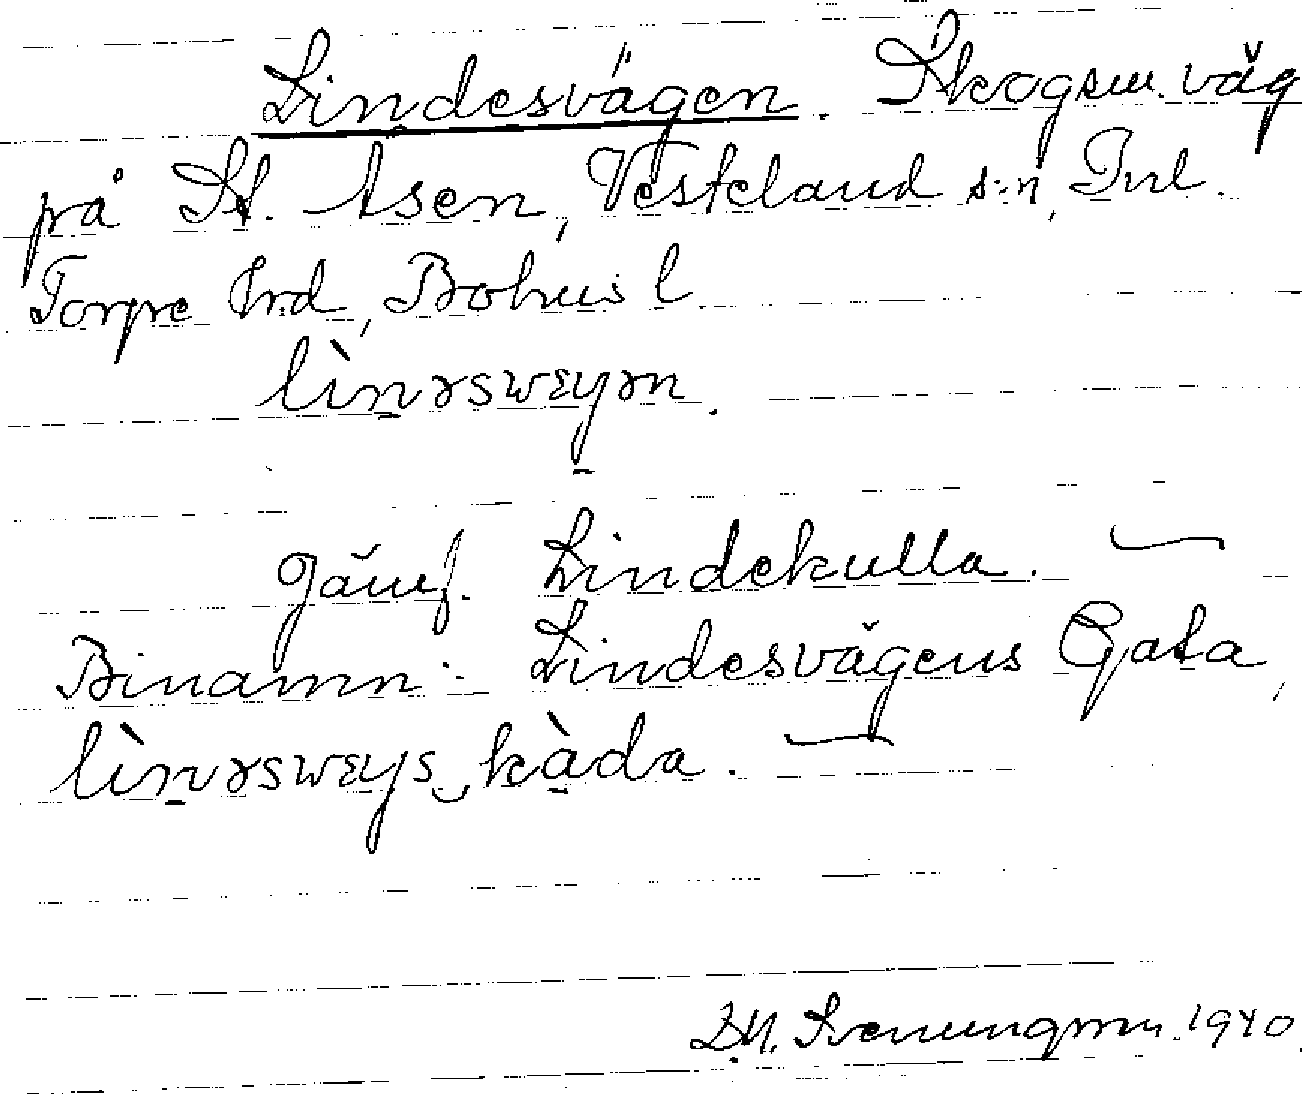 Lindesvägen. Skogsm. väg
på St. Åsen, Vesteland s:n, Inl.
Torpe Hrd, Bohus l.
lìn̠ɤswɛɡɤn.
Jämf. Lindekulla. —
Binamn: Lindesvägens Gata,
lìn̠ɤswɛɡs‿kàda. —
1940.